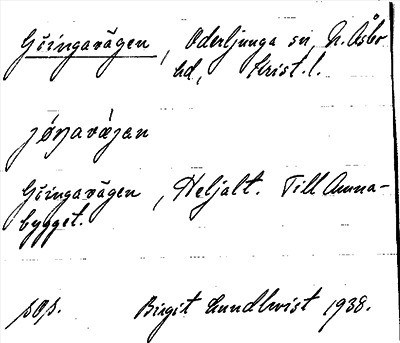 Göingavägen, Oderljunga sn, N. Åsbo
hd, Krist. l.
jöŋavä̀jan
Göingavägen, Heljalt. Till Amna-
bygget.
sOs. Birgit Lundkvist 1938.